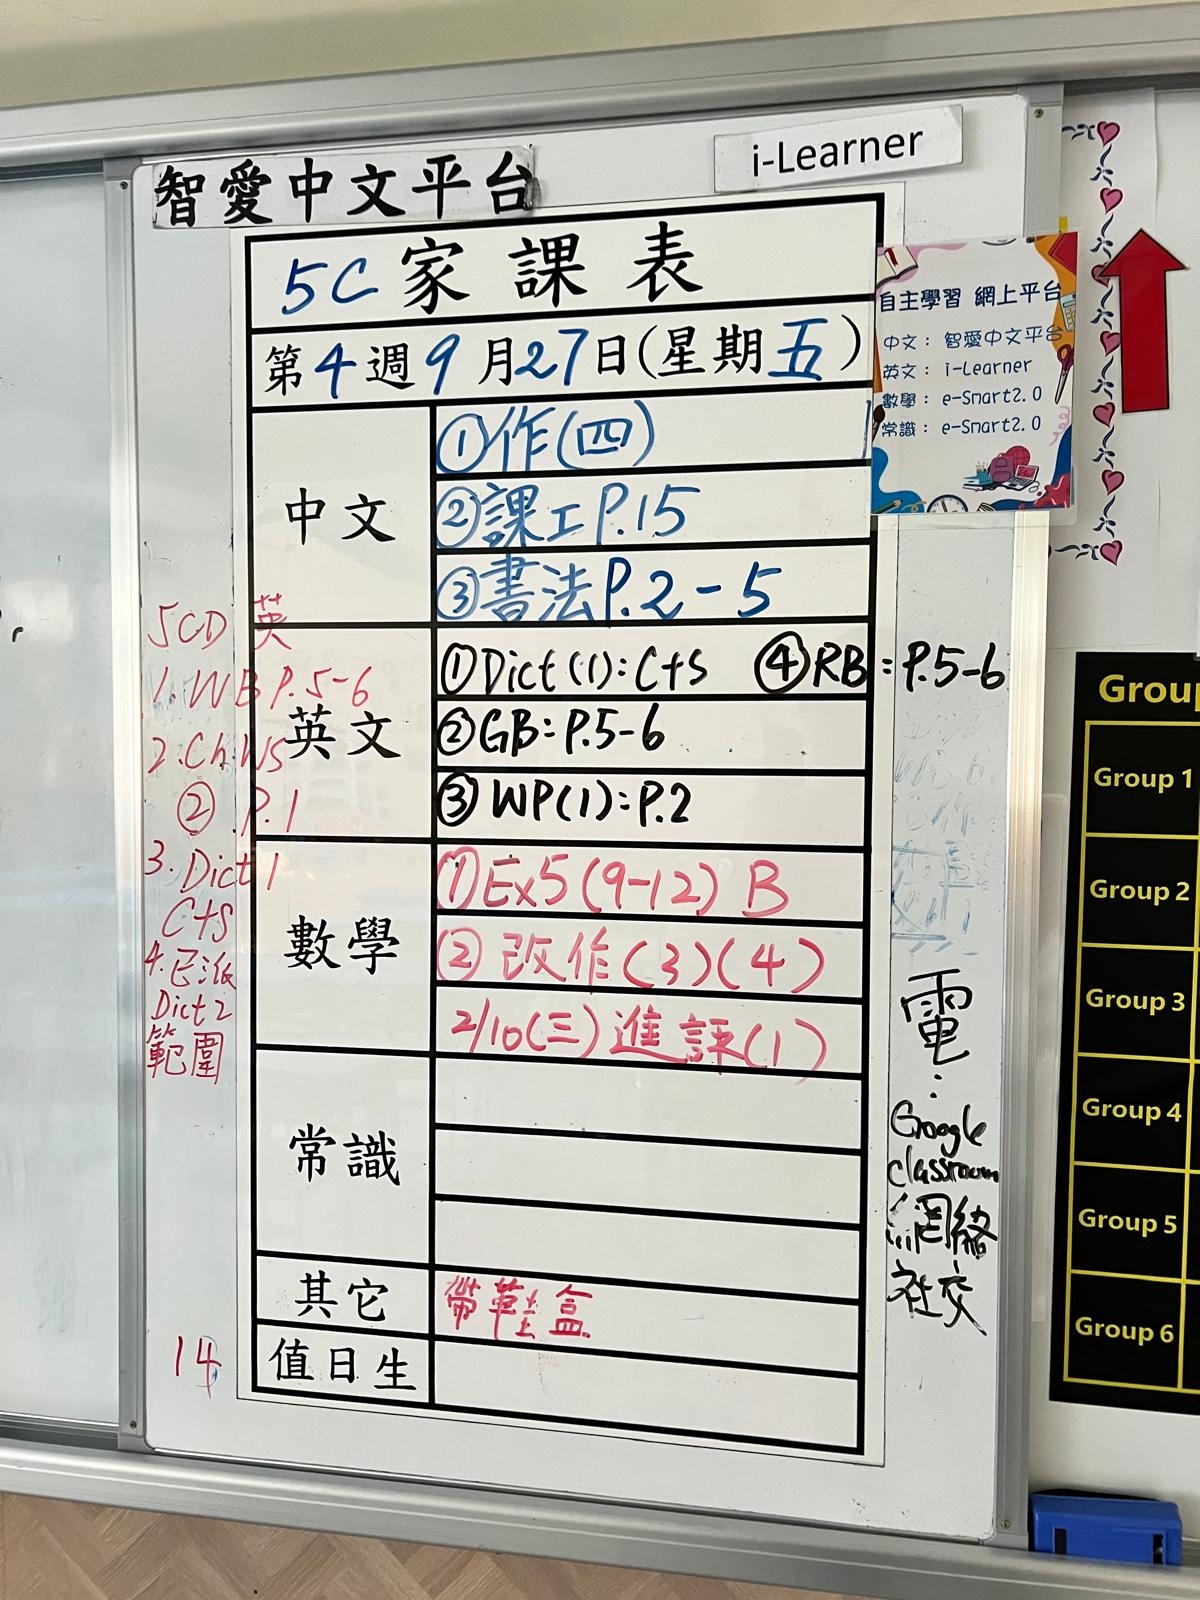 智愛中文平台
i-Learner
5C 家課表
第4週9月27日(星期五)
中文
①作(四)
②課工P.15
③書法P.2-5
英文
①Dict(1):C+S ④RB:P.5-6
②GB:P.5-6
③WP(1):P.2
數學
①Ex5(9-12) B
②改作(3)(4)
2/10(三)進評(1)
常識
其它
帶鞋盒
值日生
自主學習 網上平台
中文：智愛中文平台
英文：i-Learner
數學：e-Smart2.0
常識：e-Smart2.0
5CD 英
1.WB P.5-6
2.Ch.WS
② P.1
3.Dict 1
C+S
4.已派
Dict 2
範圍
14
電:
Google
classroom
網絡
社交
Group 1
Group 2
Group 3
Group 4
Group 5
Group 6